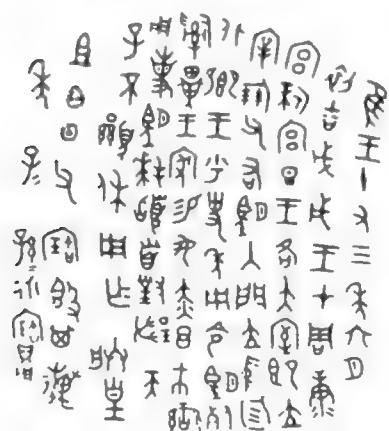 隹王十又三年六月
初吉戊戌王才周康
宮新宮旦王各大室即立
宰倗父右望入門立中廷
北鄉王乎史年冊令望死
𤔲畢王家易女赤市䜌
用事望拜𩒨首對揚天
子不顯休用乍朕皇
且白甲父寶𣪘其萬
年子孫永寶用